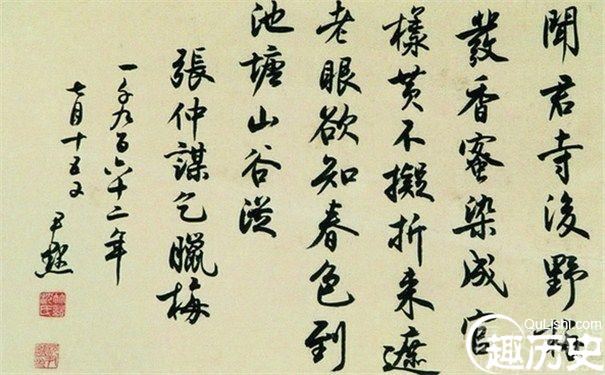 聞君寺後野梅
發香蜜染成宮
樣黄不擬折来遮
老眼欲知春色到
池塘山谷從
張仲謀乞臘梅
一千九百六十二年
七月十五日
尹默
QuLishi.com
趣历史